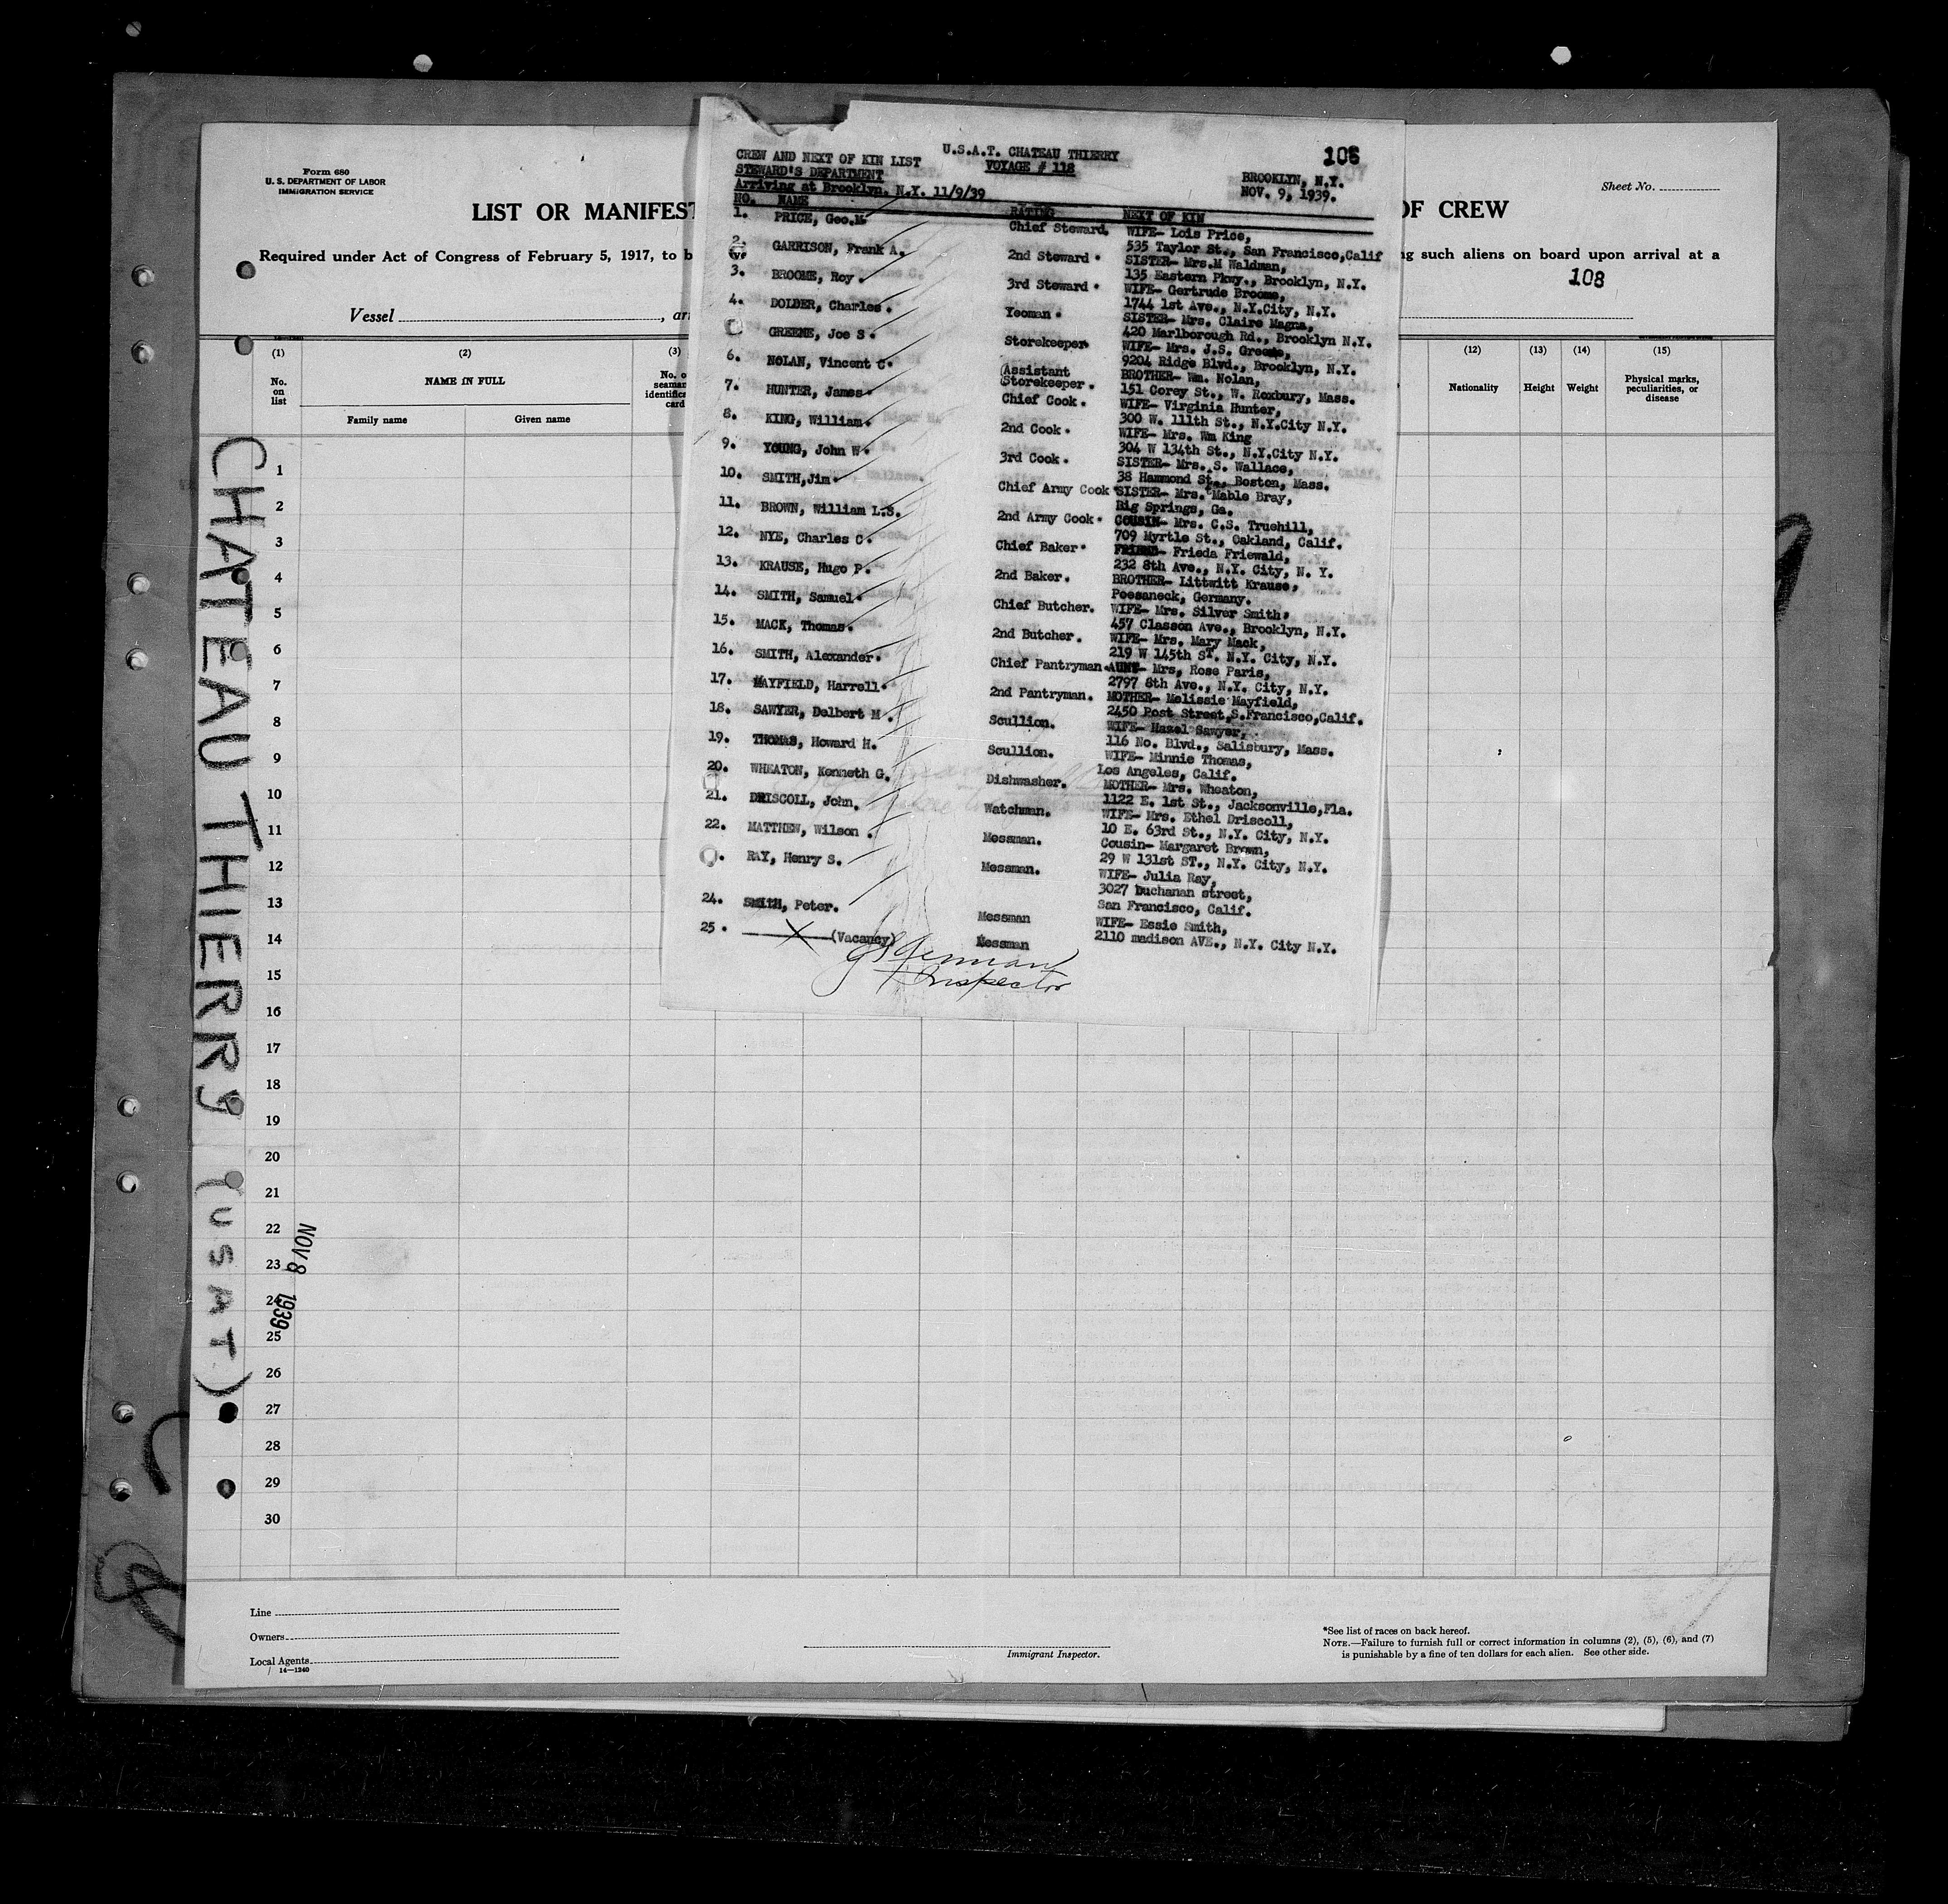 Form 680
U. S. DEPARTMENT OF LABOR
IMMIGRATION SERVICE
LIST OR MANIFEST
OF CREW
Sheet No.
Required under Act of Congress of February 5, 1917, to b
ng such aliens on board upon arrival at a
108
Vessel , ar
(1) (2) (3) (12) (13) (14) (15)
No. on list
NAME IN FULL
Family name Given name
No. o
seaman
identific
card
Nationality Height Weight
Physical marks, peculiarities, or disease
U.S.A.T. CHATEAU THIERRY
VOYAGE # 118
CREW AND NEXT OF KIN LIST
STEWARD'S DEPARTMENT
Arriving at Brooklyn, N.Y. 11/9/39
BROOKLYN, N.Y.
NOV. 9, 1939.
NO. NAME RATING NEXT OF KIN
1. PRICE, Geo.M Chief Steward. WIFE- Lois Price,
535 Taylor St., San Francisco,Calif
2. GARRISON, Frank A. 2nd Steward. SISTER- Mrs.M Waldman,
135 Eastern Pkwy., Brooklyn, N.Y.
3. BROOME, Roy. 3rd Steward. WIFE- Gertrude Broome,
1744 1st Ave., N.Y.City, N.Y.
4. DOLDER, Charles. Yeoman. SISTER- Mrs. Claire Magna,
420 Marlborough Rd., Brooklyn N.Y.
GREENE, Joe S. Storekeeper WIFE- Mrs. J.S. Greene,
9204 Ridge Blvd., Brooklyn, N.Y.
6. NOLAN, Vincent C. Assistant Storekeeper. BROTHER- Wm. Nolan,
151 Corey St., W. Roxbury, Mass.
7. HUNTER, James. Chief Cook. WIFE- Virginia Hunter,
300 W. 111th St., N.Y.City N.Y.
8. KING, William. 2nd Cook. WIFE- Mrs. Wm King
304 W 134th St., N.Y.City N.Y.
9. YOUNG, John W. 3rd Cook. SISTER- Mrs. S. Wallace,
38 Hammond St., Boston, Mass.
10. SMITH,Jim. Chief Army Cook SISTER- Mrs. Mable Bray,
Big Springs, Ga.
11. BROWN, William L.S. 2nd Army Cook. COUSIN- Mrs. C.S. Truehill,
709 Myrtle St., Oakland, Calif.
12. NYE, Charles C. Chief Baker. FRIEND- Frieda Friewald,
232 8th Ave., N.Y. City, N. Y.
13. KRAUSE, Hugo P. 2nd Baker. BROTHER- Littwitt Krause,
Poesaneck, Germany.
14. SMITH, Samuel. Chief Butcher. WIFE- Mrs. Silver Smith,
457 Classon Ave., Brooklyn, N.Y.
15. MACK, Thomas. 2nd Butcher. WIFE- Mrs. Mary Mack,
219 W 145th ST. N.Y. City, N.Y.
16. SMITH, Alexander. Chief Pantryman. AUNT- Mrs, Rose Paris,
2797 8th Ave., N.Y. City, N.Y.
17. MAYFIELD, Harrell. 2nd Pantryman. MOTHER- Melissie Mayfield,
2450 Post Street,S.Francisco,Calif.
18. SAWYER, Delbert M. Scullion. WIFE- Hazel Sawyer,
116 No. Blvd., Salisbury, Mass.
19. THOMAS, Howard H. Scullion. WIFE- Minnie Thomas,
Los Angeles, Calif.
20. WHEATON, Kenneth G. Dishwasher. MOTHER- Mrs. Wheaton,
1122 E. 1st St., Jacksonville,Fla.
21. DRISCOLL, John. Watchman. WIFE- Mrs. Ethel Driscoll,
10 E. 63rd St., N.Y. City, N.Y.
22. MATTHEW, Wilson. Messman. Cousin- Margaret Brown,
29 W 131st ST., N.Y. City, N.Y.
RAY, Henry S. Messman. WIFE- Julia Ray,
3027 buchanan street,
San Francisco, Calif.
24. SMITH, Peter. Messman WIFE- Essie Smith,
2110 madison AVE., N.Y. City N.Y.
25. (Vacancy) Messman
Inspector
CHATEAU THIERRY (USAT)
NOV 8 1939
1
2
3
4
5
6
7
8
9
10
11
12
13
14
15
16
17
18
19
20
21
22
23
24
25
26
27
28
29
30
Line
Owners
Local Agents
14—1240
Immigrant Inspector.
*See list of races on back hereof.
NOTE.—Failure to furnish full or correct information in columns (2), (5), (6), and (7)
is punishable by a fine of ten dollars for each alien. See other side.